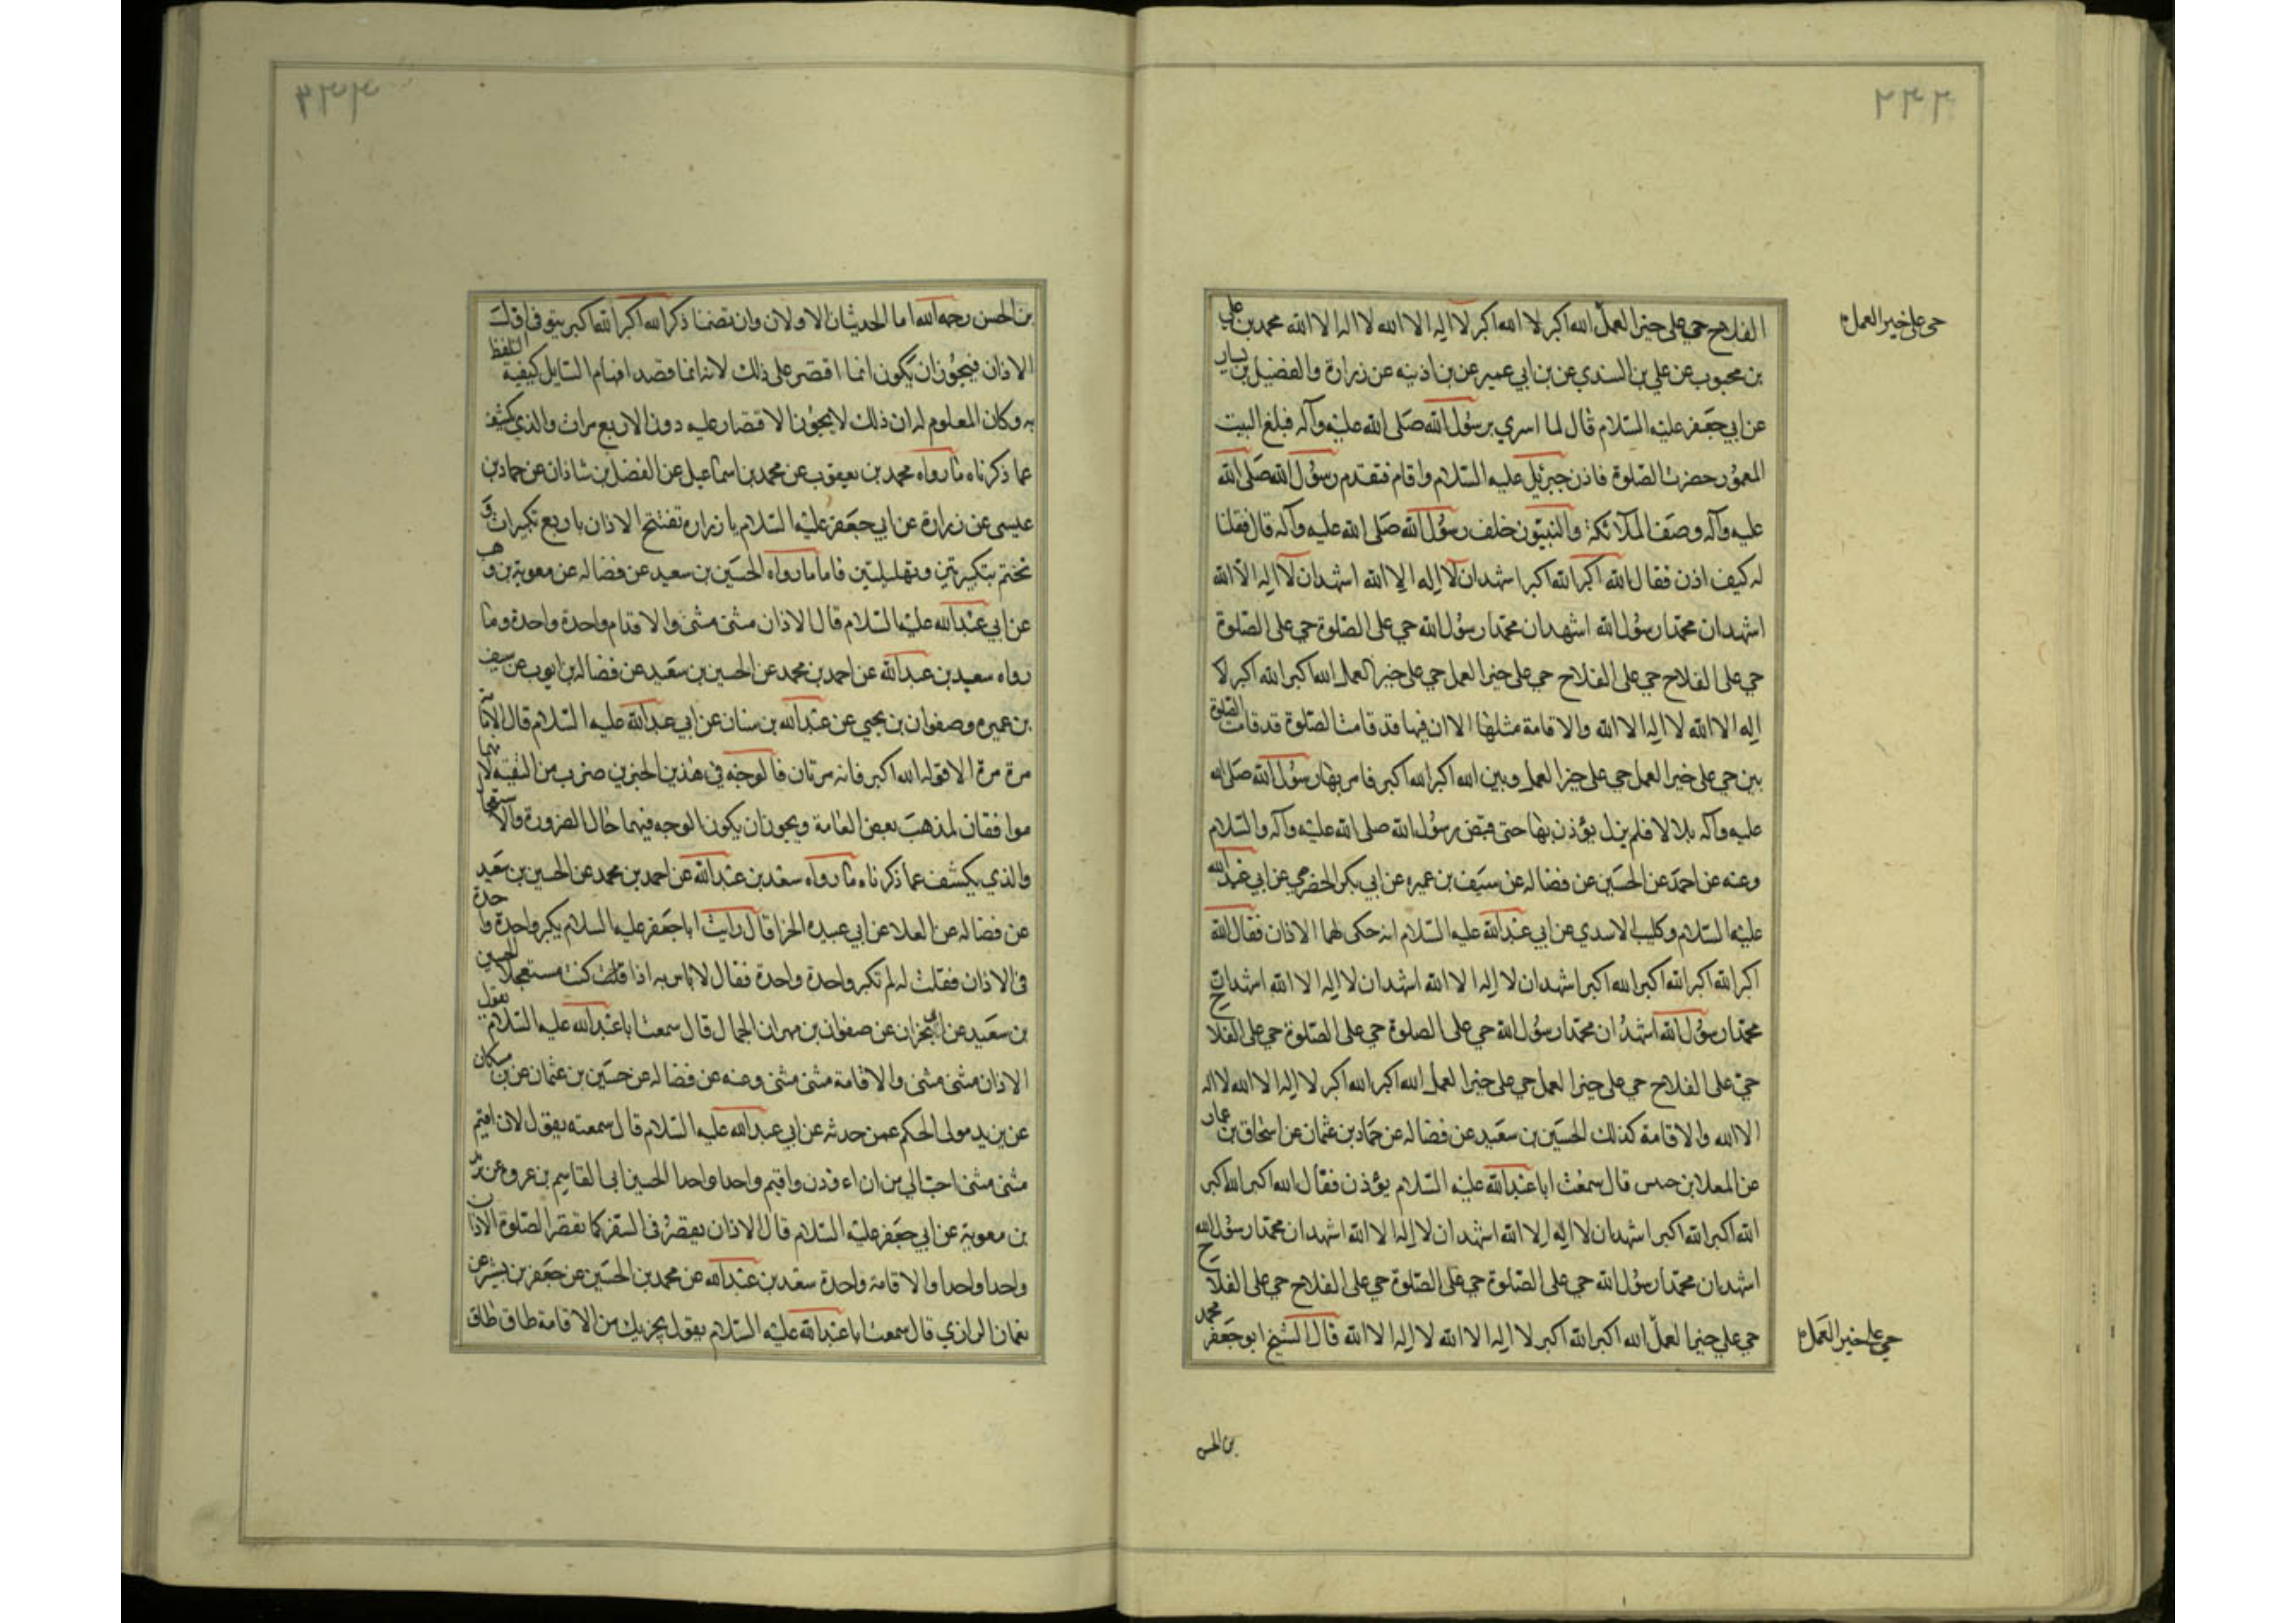 ٢٣٢
حى على خير العمل
الفلاح حي على خير العمل الله اكبر لا الله اكبر لا اله الا الله لا اله الا الله محمد بن علي
بن محبوب عن علي بن السندي عن بن ابي عمير عن بن اذينه عن زرارة والفضيل بن يسار
عن ابي جعفر عليه السلام قال لما اسري برسول الله صلى الله عليه وآله فبلغ البيت
المعمور حضرت الصلوة فاذن جبرئيل عليه السلام واقام فتقدم رسول الله صلى الله
عليه وآله وصف الملآئكة والنبيون خلف رسول الله صلى الله عليه وآله قال فقلنا
له كيف اذن فقال الله اكبر الله اكبر اشهد ان لا اله الا الله اشهد ان لا اله الا الله
اشهد ان محمدا رسول الله اشهد ان محمدا رسول الله حي على الصلوة حي على الصلوة
حي على الفلاح حي على الفلاح حي على خير العمل حي على خير العمل الله اكبر الله اكبر لا
اله الا الله لا اله الا الله والاقامة مثلها الا ان فيها قد قامت الصلوة قد قامت الصلوة
بين حي على خير العمل حي على خير العمل وبين الله اكبر الله اكبر فامر بها رسول الله صلى الله
عليه وآله بلالا فلم يزل يؤذن بها حتى قبض رسول الله صلى الله عليه وآله والسلام
وعنه عن احمد عن الحسين عن فضاله عن سيف بن عميره عن ابي بكر الحضرمي عن ابي عبد الله
عليه السلام وكليب الاسدي عن ابي عبد الله عليه السلام انه حكى لهما الاذان فقال الله
اكبر الله اكبر الله اكبر الله اكبر اشهد ان لا اله الا الله اشهد ان لا اله الا الله اشهد ان
محمدا رسول الله اشهد ان محمدا رسول الله حي على الصلوة حي على الصلوة حي على الفلاح
حي على الفلاح حي على خير العمل حي على خير العمل الله اكبر الله اكبر لا اله الا الله لا اله
الا الله والاقامة كذلك الحسين بن سعيد عن فضاله عن حماد بن عثمان عن اسحاق بن عمار
عن المعلا بن قال سمعت ابا عبد الله عليه السلام يؤذن فقال الله اكبر الله اكبر
الله اكبر الله اكبر اشهد ان لا اله الا الله اشهد ان لا اله الا الله اشهد ان محمدا رسول الله
اشهد ان محمدا رسول الله حي على الصلوة حي على الصلوة حي على الفلاح حي على الفلاح
حي على خير العمل الله اكبر الله اكبر لا اله الا الله لا اله الا الله قال الشيخ ابو جعفر محمد
حي على خير العمل
بن الحسن
٢٣٣
بن الحسن رحمه الله اما الحديثان الاولان وان تضمنا ذكر الله اكبر الله اكبر
الاذان فيجوز ان يكون انما اقتصر على ذلك لانه انما قصد افهام السايل كيفية التلفظ
به وكان المعلوم له ان ذلك لا يجوز الاقتصار عليه دون الاربع مرات والذي يكشف
عما ذكرناه ما رواه محمد بن يعقوب عن محمد بن اسماعيل عن الفضل بن شاذان عن حماد بن
عيسى عن زرارة عن ابي جعفر عليه السلام يا زراره تفتتح الاذان باربع تكبيرات و
تختم بتكبيرتين وتهليلتين فاما ما رواه الحسين بن سعيد عن فضاله عن معوية بن وهب
عن ابي عبد الله عليه السلام قال الاذان مثنى مثنى والاقامة واحدة واحدة وما
رواه سعيد بن عبد الله عن احمد بن محمد عن الحسين بن سعيد عن فضاله بن ايوب عن سيف
بن عميره وصفوان بن يحيى عن عبد الله بن سنان عن ابي عبد الله عليه السلام قال الاقامة
مرة مرة الا قوله الله اكبر فانه مرتان فالوجه في هذين الخبرين ضرب من التقية لانهما
موافقان لمذهب بعض العامة ويجوز ان يكون الوجه فيهما حال الضرورة والاستعجال
والذي يكشف عما ذكرناه ما رواه سعد بن عبد الله عن احمد بن محمد عن الحسين بن سعيد
عن فضاله عن العلا عن ابي عبيده الحزا قال رايت ابا جعفر عليه السلام يكبر واحدة واحدة
فى الاذان فقلت له لم تكبر واحدة واحدة فقال لا باس به اذا كنت مستعجلا الحسين
بن سعيد عن ابي نجران عن صفوان بن مهران الجمال قال سمعت ابا عبد الله عليه السلام يقول
الاذان مثنى مثنى والاقامة مثنى مثنى وعنه عن فضاله عن حسين بن عثمان عن بن مسكان
عن يزيد مولى الحكم عمن حدثه عن ابي عبد الله عليه السلام قال سمعته يقول لان اقيم
مثنى مثنى احب الي من ان اءوذن واقيم واحدا واحدا الحسين ابي القاسم بن عروه عن بريد
بن معوية عن ابي جعفر عليه السلام قال الاذان يقصر فى السفر كما تقصر الصلوة الاذان
واحدا واحدا والاقامة واحدة سعد بن عبد الله عن محمد بن الحسين عن جعفر بن بشير عن
نعمان الرازي قال سمعت ابا عبد الله عليه السلام يقول يجزيك من الاقامة طاق طاق